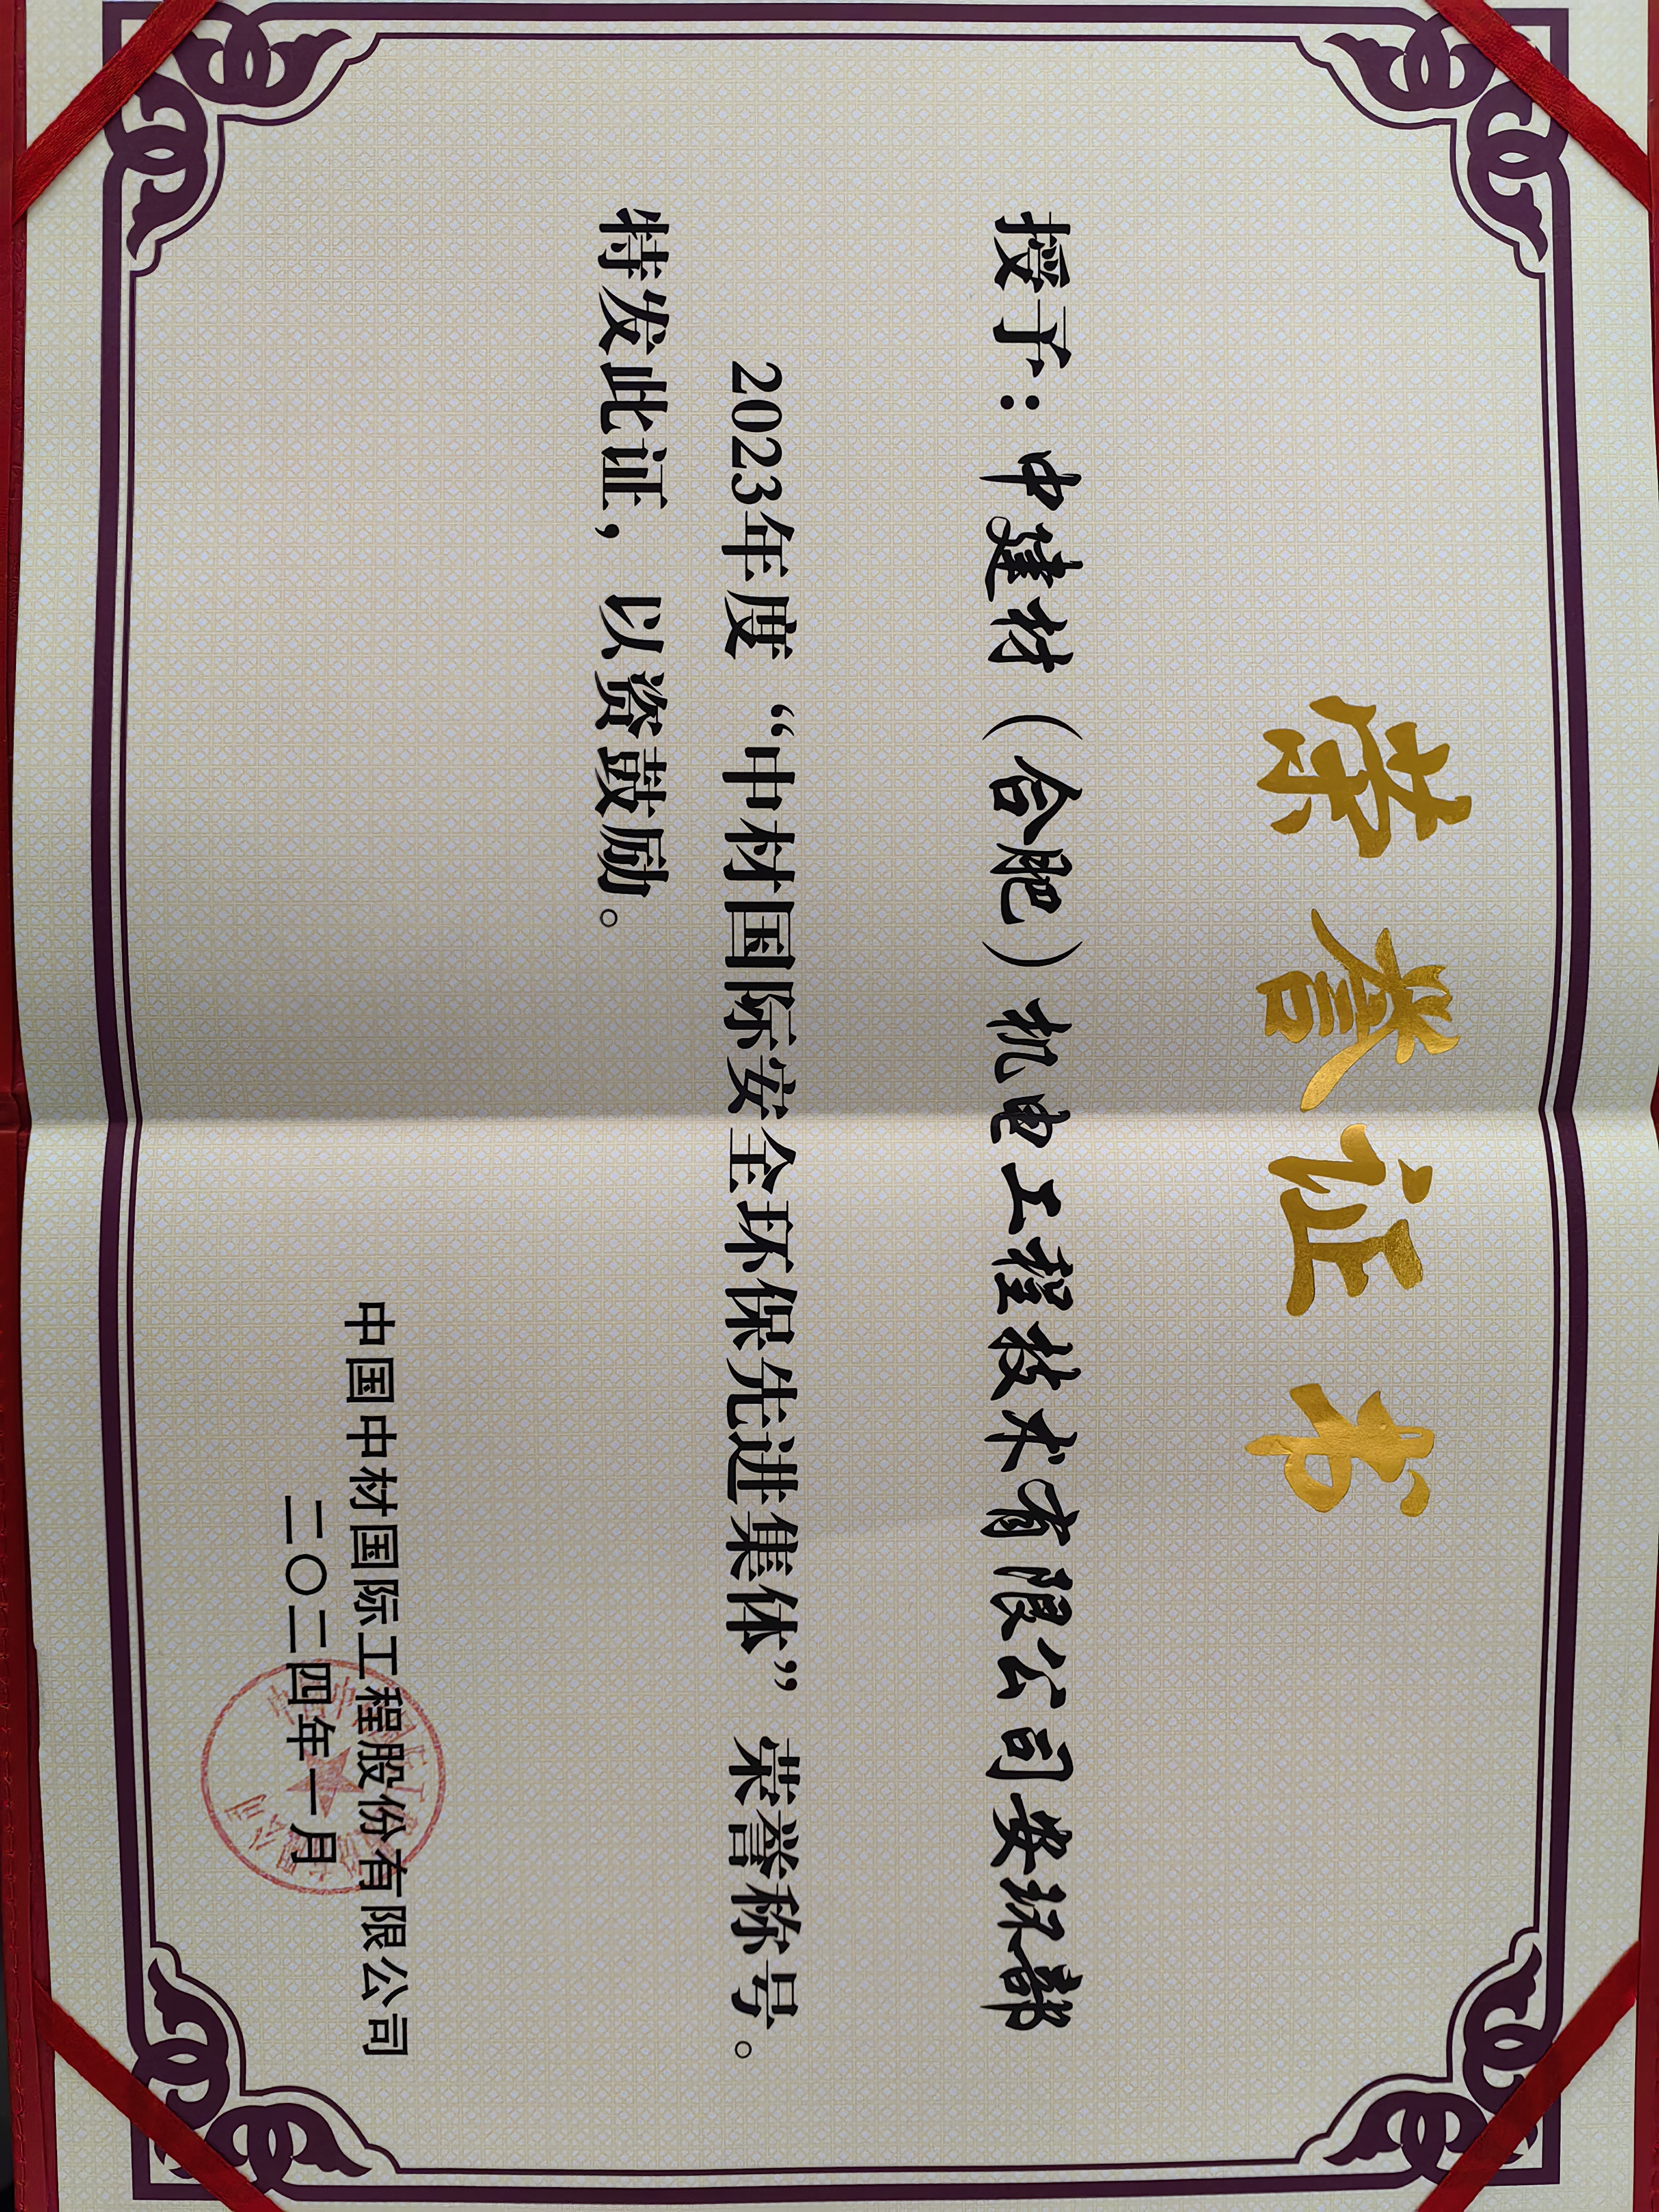 荣誉证书
授予：中建材（合肥）机电工程技术有限公司安环部
2023年度“中材国际安全环保先进集体”荣誉称号。
特发此证，以资鼓励。
中国中材国际工程股份有限公司
二〇二四年一月